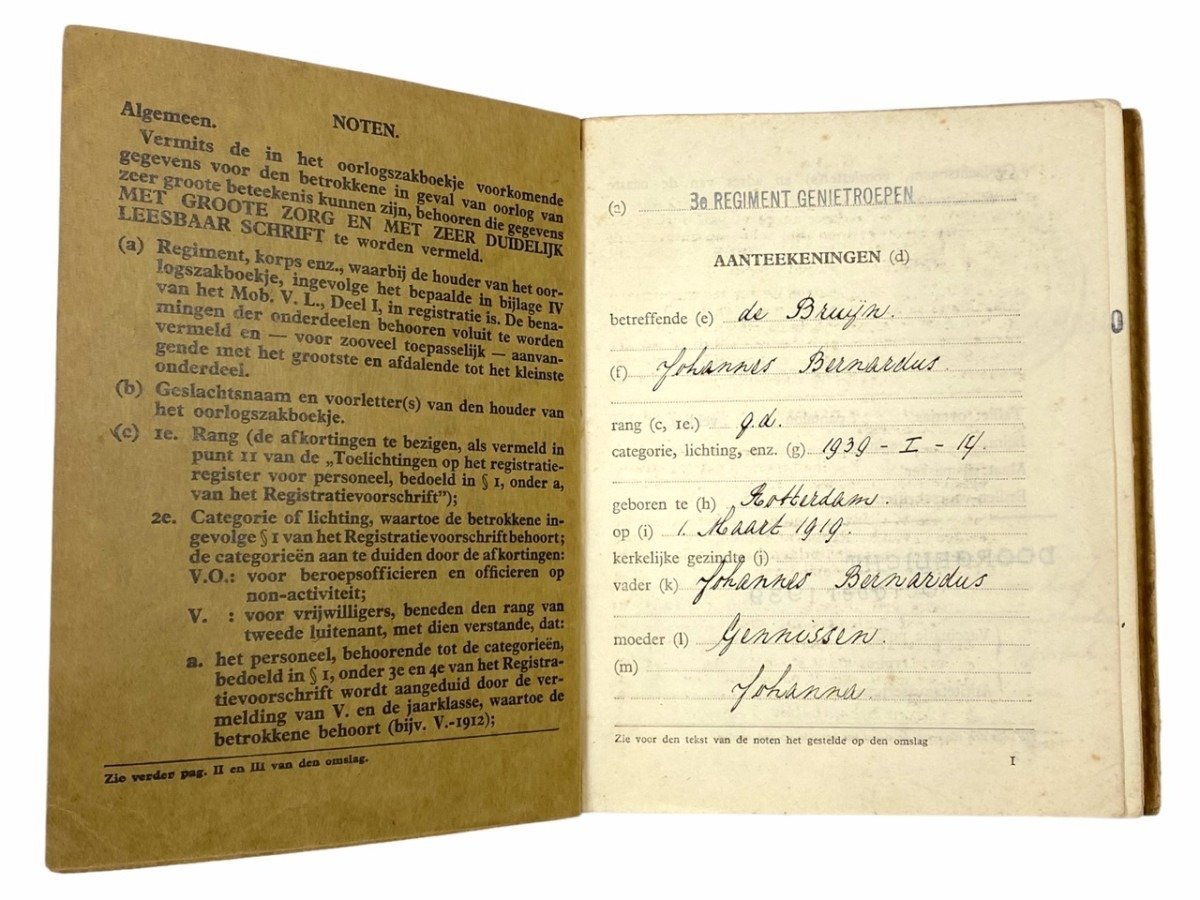 Algemeen. NOTEN.
Vermits de in het oorlogszakboekje voorkomende
gegevens voor den betrokkene in geval van oorlog van
zeer groote beteekenis kunnen zijn, behooren die gegevens
MET GROOTE ZORG EN MET ZEER DUIDELIJK
LEESBAAR SCHRIFT te worden vermeld.
(a) Regiment, korps enz., waarbij de houder van het oor-
logszakboekje, ingevolge het bepaalde in bijlage IV
van het Mob. V. L., Deel I, in registratie is. De bena-
mingen der onderdeelen behooren voluit te worden
vermeld en — voor zooveel toepasselijk — aanvan-
gende met het grootste en afdalende tot het kleinste
onderdeel.
(b) Geslachtsnaam en voorletter(s) van den houder van
het oorlogszakboekje.
(c) 1e. Rang (de afkortingen te bezigen, als vermeld in
punt 11 van de „Toelichtingen op het registratie-
register voor personeel, bedoeld in § 1, onder a,
van het Registratievoorschrift");
2e. Categorie of lichting, waartoe de betrokkene in-
gevolge § 1 van het Registratievoorschrift behoort;
de categorieën aan te duiden door de afkortingen:
V.O.: voor beroepsofficieren en officieren op
non-activiteit;
V. : voor vrijwilligers, beneden den rang van
tweede luitenant, met dien verstande, dat:
a. het personeel, behoorende tot de categorieën,
bedoeld in § 1, onder 3e en 4e van het Registra-
tievoorschrift wordt aangeduid door de ver-
melding van V. en de jaarklasse, waartoe de
betrokkene behoort (bijv. V.-1912);
Zie verder pag. II en III van den omslag.
(a) 3e REGIMENT GENIETROEPEN
AANTEEKENINGEN (d)
betreffende (e) de Bruijn.
(f) Johannes Bernardus.
rang (c, 1e.) g.d.
categorie, lichting, enz. (g) 1939 - I - 14.
geboren te (h) Rotterdam.
op (i) 1. Maart 1919.
kerkelijke gezindte (j)
vader (k) Johannes Bernardus
moeder (l) Gennissen.
(m)
Johanna.
Zie voor den tekst van de noten het gestelde op den omslag
1